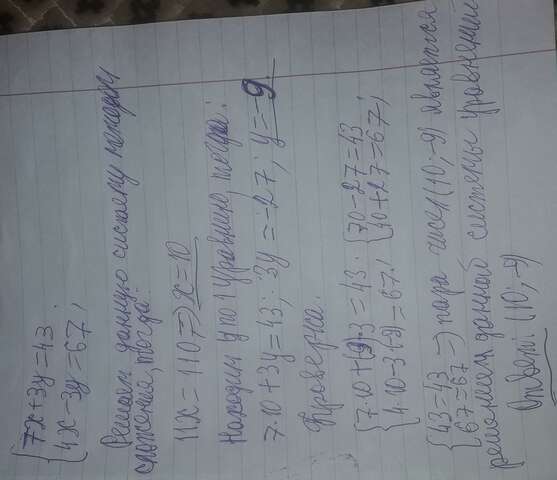 {7x+3y=43
{4x-3y=67;
Решаем данную систему методом
сложения, тогда:
11x=110, => x=10
Находим y по 1 уравнению, тогда:
7·10+3y=43; 3y=-27; y=-9.
Проверка.
{7·10+(-9)·3=43. {70-27=43
{4·10-3·(-9)=67. {40+27=67;
{43=43
{67=67 => пара чисел (10;-9) является
решением данной системы уравнений
Ответ: (10;-9)